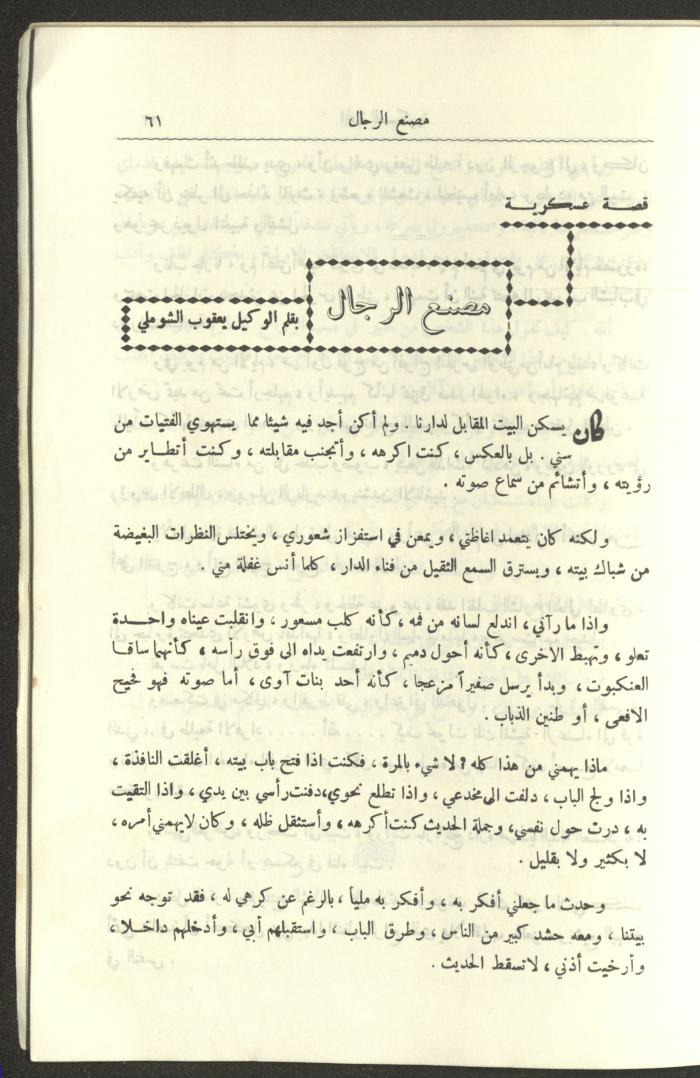 مصنع الرجال
٦١
قصة عسكرية
مصنع الرجال
بقلم الوكيل يعقوب الشوملي
كان يسكن البيت المقابل لدارنا .. ولم أكن أجد فيه شيئا مما يستهوي الفتيات من
سني . بل بالعكس ، كنت اكرهه ، وأتجنب مقابلته ، وكنت أتطاير من
رؤيته ، وأتشائم من سماع صوته .
ولكنه كان يتعمد اغاظتي ، ويمعن في استفزاز شعوري ، ويختلس النظرات البغيضة
من شباك بيته ، ويسترق السمع الثقيل من فناء الدار ، كلما أنس غفلة مني .
واذا ما رآني ، اندلع لسانه من فمه ، كأنه كلب مسعور ، وانقلبت عيناه واحدة
تعلو ، وتهبط الاخرى ، كأنه أحول دميم ، وارتفعت يداه الى فوق رأسه ، كأنها ساقا
العنكبوت ، وبدأ يرسل صفيراً مزعجا ، كأنه أحد بنات آوى ، أما صوته فهو فحيح
الافعى ، أو طنين الذباب .
ماذا يهمني من هذا كله ? لا شيء بالمرة ، فكنت اذا فتح باب بيته ، أغلقت النافذة ،
واذا ولج الباب ، دلفت الى مخدعي ، واذا تطلع نحوي، دفنت رأسي بين يدي ، واذا التقيت
به ، درت حول نفسي، وجملة الحديث كنت أكرهه ، وأستثقل ظله ، وكان لايهمني أمره ،
لا بكثير ولا بقليل .
وحدث ما جعلني أفكر به ، وأفكر به ملياً ، بالرغم عن كرهي له ، فقد توجه نحو
بيتنا ، ومعه حشد كبير من الناس ، وطرق الباب ، واستقبلهم أبي ، وأدخلهم داخلا ،
وأرخيت أذني ، لاتسقط الحديث .